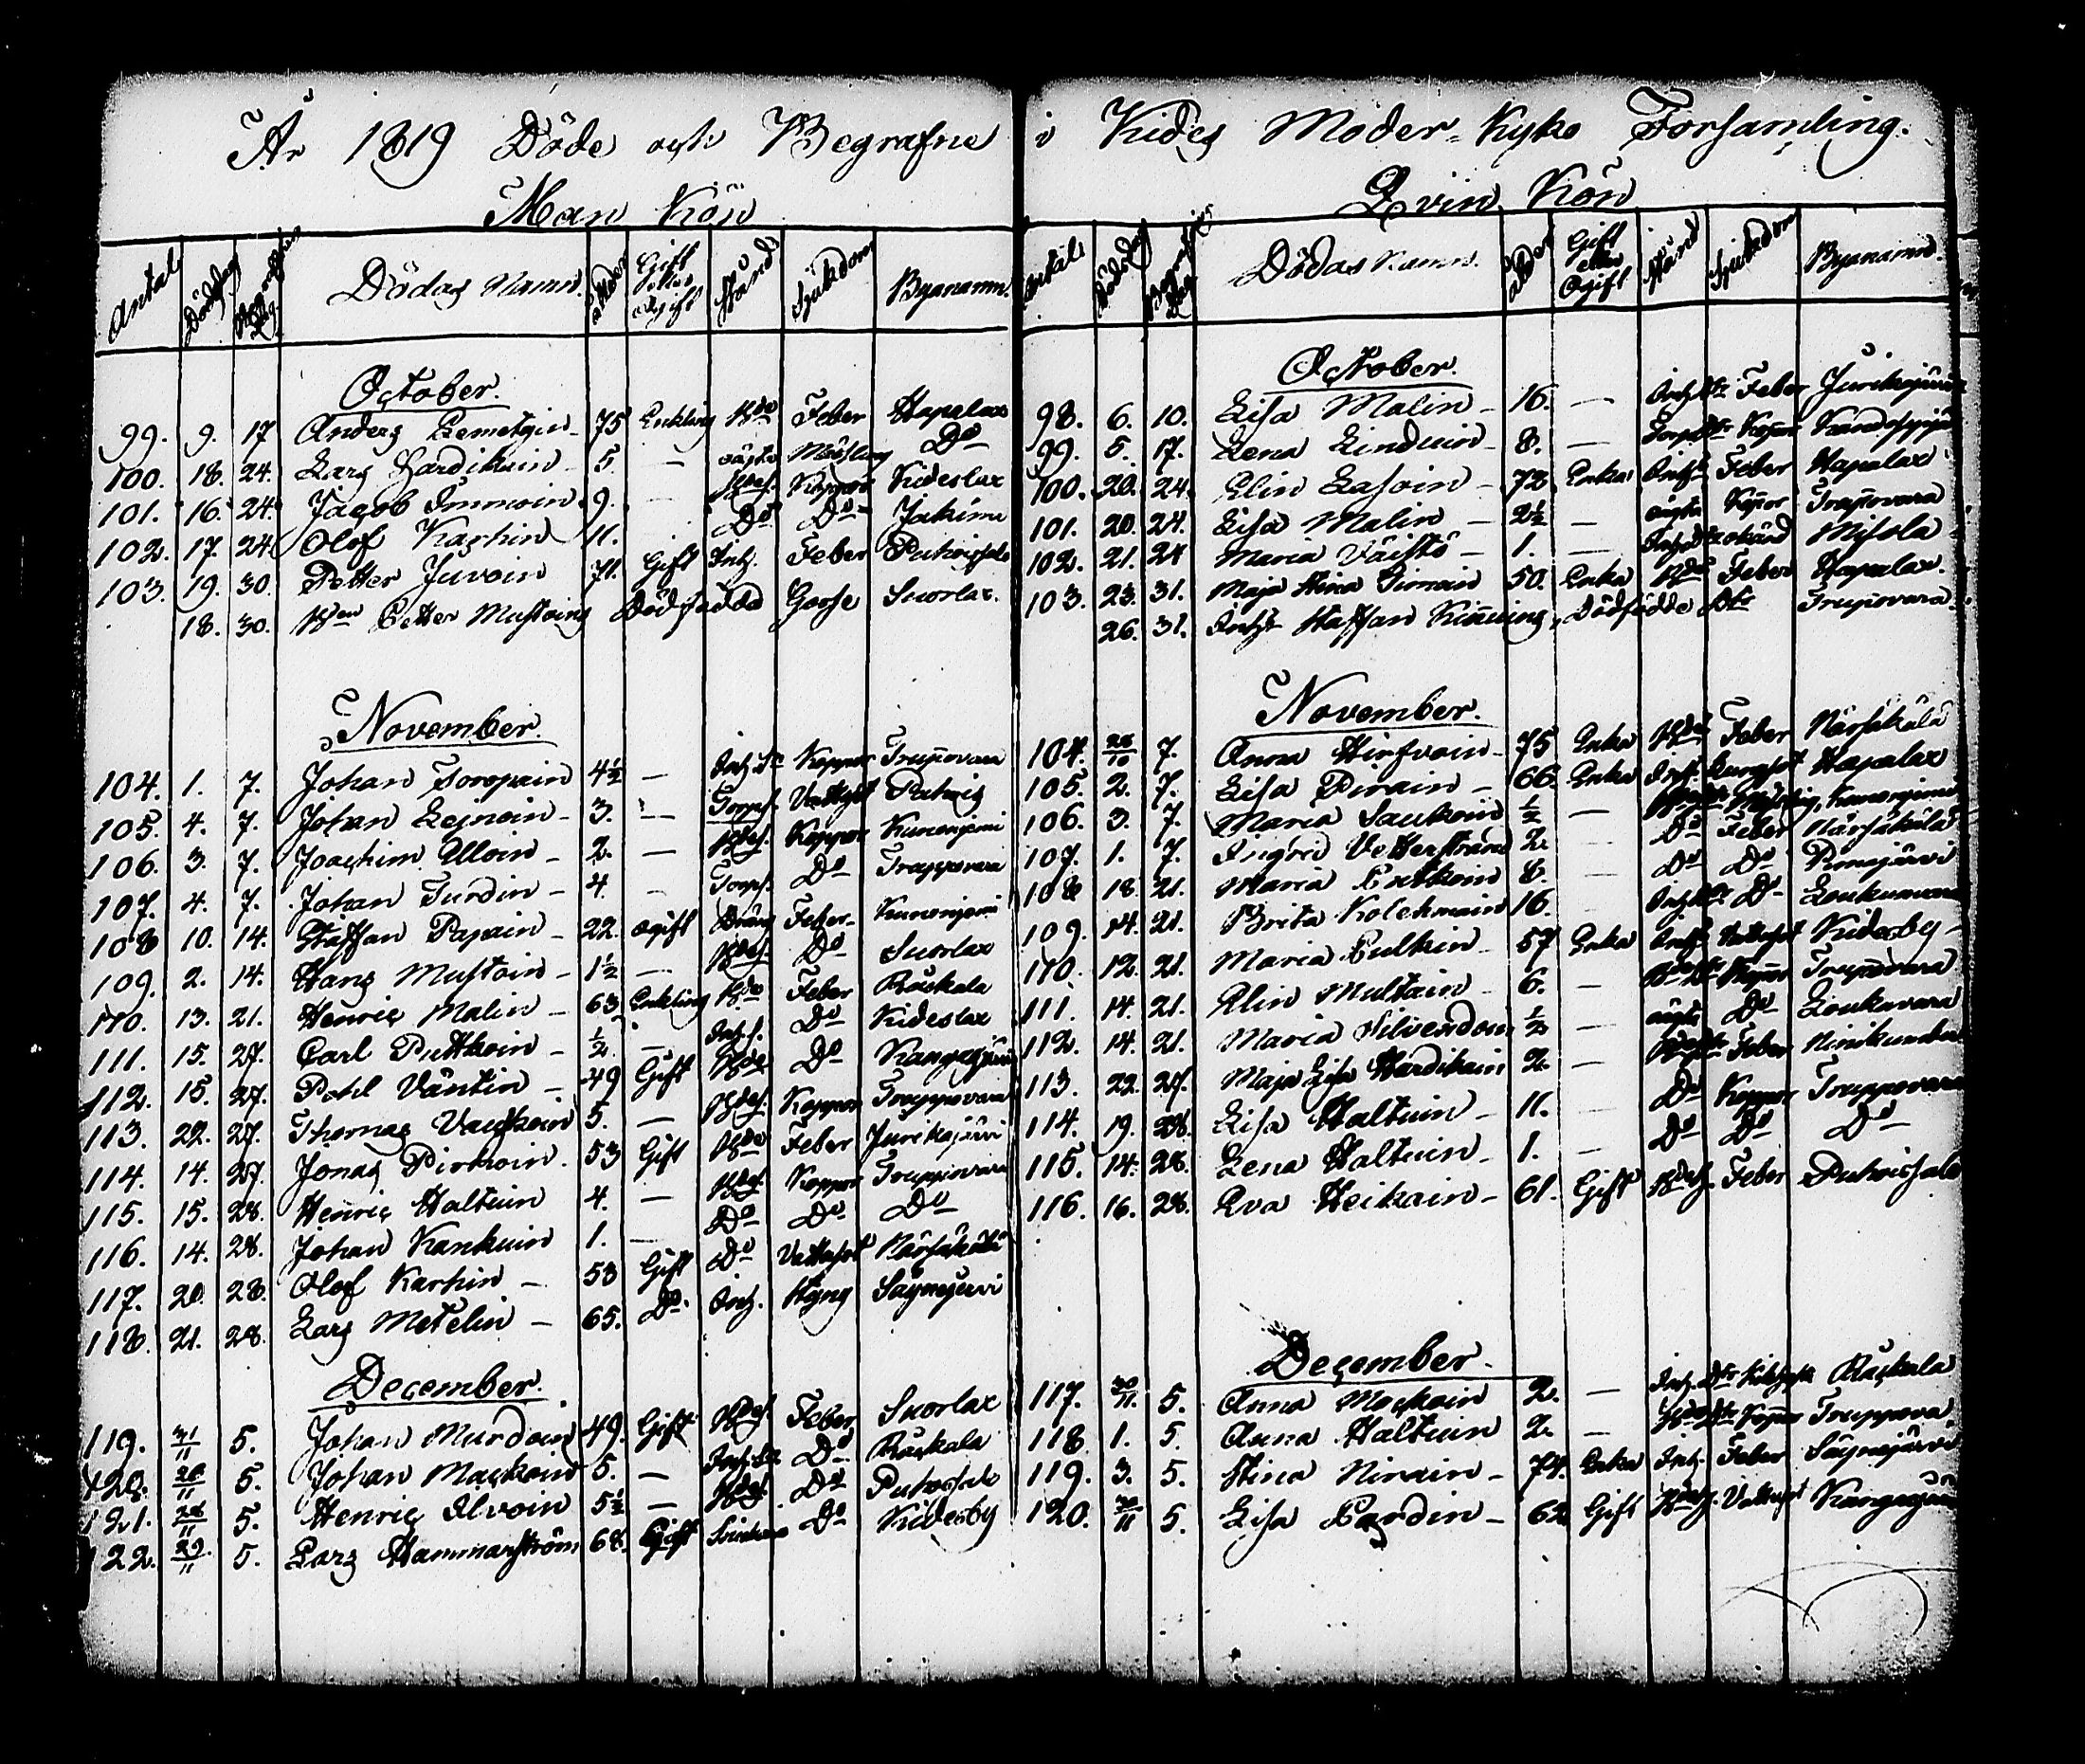 År 1819 Döde och Begrafne i Kides Moder-Kyko Forsamling.
Man Kön
Antal Dödsdag Begrafnings Dag Dödas Namn. Ålder Gift eller Ogift Stånd Sjukdom Byanamn.
October.
99. 9. 17 Anders Lemetyin 75 Enkling Feber Hapalax
100. 18. 24. Lars Hardikain 5. — oägta Mäsling Do
101. 16. 24. Jacob Immoin 9. — Koppor Kideslax
102. 17. 24. Olof Karhin 11. Do Do Jakima
103. 19. 30. Petter Juvoin 71. Gift Inh. Feber Puhoissalo
18. 30. Petter Mustoins Dödfödda Gosse Suorlax.
November.
104. 1. 7. Johan Soropain 4½ — Inh. Koppor Truppovara
105. 4. 7. Johan Leinoin 3. — Torp. Vattsot Puhois
106. 3. 7. Joachim Alloin 2. — Koppor Kunonjemi
107. 4. 7. Johan Turdin 4. — Torp. Do Truppovara
108 10. 14. Staffan Papain 22. ogift Dräng Feber Kunonjemi
109. 2. 14. Hans Mustoin 1½ — Do Suorlax
110. 13. 21. Henric Malin 63 Enkling Feber Räskala
111. 15. 27. Carl Puttkoin ½ — Inh. Do Kideslax
112. 15. 27. Pohl Väntin 49 Gift Do Kangasjärvi
113. 22. 27. Thomas 5. — Koppor Truppovara
114. 14. 27. Jonas Pirhoin 53 Gift Feber Jurikajärvi
115. 15. 28. Henric Haltuin 4. — Koppor Truppovara
116. 14. 28. Johan Kankuin 1. — Do Do Do
117. 20. 28. Olof Karhin 53 Gift Do Vattsot Närsäkälä
118. 21. 28. Lars Metelin 65. Do Inh. Styng Säynejervi
December.
119. 31/11 5. Johan Murdoin 49. Gift Feber Suorlax
120. 28/11 5. Johan Mackoin 5. — Do Räskala
121. 28/11 5. Henric Ilvoin 5½ — Do Puhossalo
122. 29/11 5. Lars Hammarström 68. Gift Do Kidesby
Qvin Kön
Antal Dödsdag Begrafnings Dag Dödas Namn. Ålder Gift eller Ogift Stånd Sjukdom Byanamn.
October.
98. 6. 10. Lisa Malin 16. — Feber Jurikajärvi
99. 5. 17. Lena Linduin 8. —
100. 20. 24. Elin Lasoin 72 Enka Feber Hapalax
101. 20. 24. Lisa Malin 2½ — oägta Koppor Truppovara
102. 21. 24 Maria Väistö 1. — Misola
103. 23. 31. Maja Stina 50. Enka Feber Hapalax.
26. 31. Staffan Kinnuins Dödfödde Dtr Truppovara
November.
104. 28/10 7. Anna Hirfvoin 75 Enka Feber Närsäkälä
105. 2. 7. Lisa Pirain 66. Enka Lungsot Hapalax
106. 3. 7. Maria Saukoin ½ — Mäsling, Kunonjemi
107. 1. 7. Ingrid Vetterstrand 2. Do Feber Närsäkälä
108 18. 21. Maria Puttkoin 8. Do Do
109. 14. 21. Brita Kolehmain 16. Do Loukunvara
110. 12. 21. Maria Pulkin 57 Enka Vattusot Kidesby
111. 14. 21. Elin Multain 6. — Koppor Truppovara
112. 14. 21. Maria Silvendoin ½ — oägta Do Loukuvara
113. 22. 27. Maja Lisa Hardikain 2. — Feber Ninikumbu
114. 19. 28. Lisa Haltuin 11. — Do Koppor Truppovara
115. 14. 28. Lena Haltuin 1. — Do Do Do
116. 16. 28. Eva Heikain 61. Gift Feber Puhoissalo
December.
117. 30/11. 5. Anna Mackoin 2. — Räskala
118. 1. 5. Anna Haltuin 2. — Koppor Truppova
119. 3. 5. Stina Ninain 74. Enka Inh. Feber Säynejärvi
120. 30/11 5. Lisa Pardin 62 Gift Vattusot Kangasjärvi